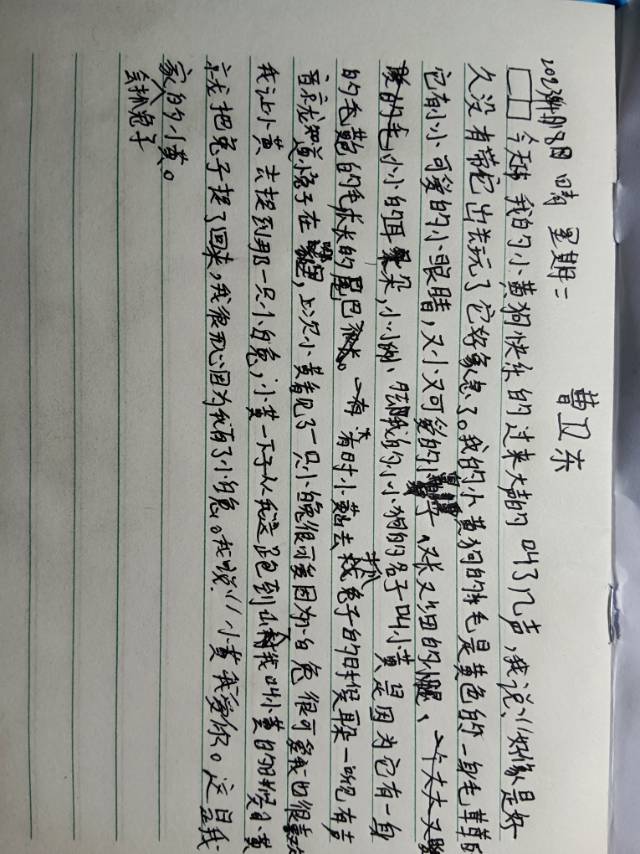 2023年4月18日 晴 星期二
曹卫东
今天 我的小黄狗快乐的过来大声的叫了几声，我说“好像是好
久没有带它出去玩了它好象急了。我的小黄狗的毛是黄色的一身毛
它有小小可爱的小眼睛，又小又可爱的小 又长又细的小腿、一个大大又
的毛，小小的耳朵，小小脚、 我的小小狗的名子叫小黄是因为它有一身
的毛 的毛 长的尾巴很长。有一天有时小黄出去找兔子的时候耳朵一动听有声
音 知道小兔子在 里，上次小黄看见了一只小白兔很可爱因为白兔很可爱我也很喜欢
我让小黄去捉到那一只小白兔，小黄一下子从我这跑到 我叫小黄的时候小黄
把兔子捉了回来，我很开心因为我有了小白兔。我说“小黄我爱你。这 我
家的小黄。
会抓兔子